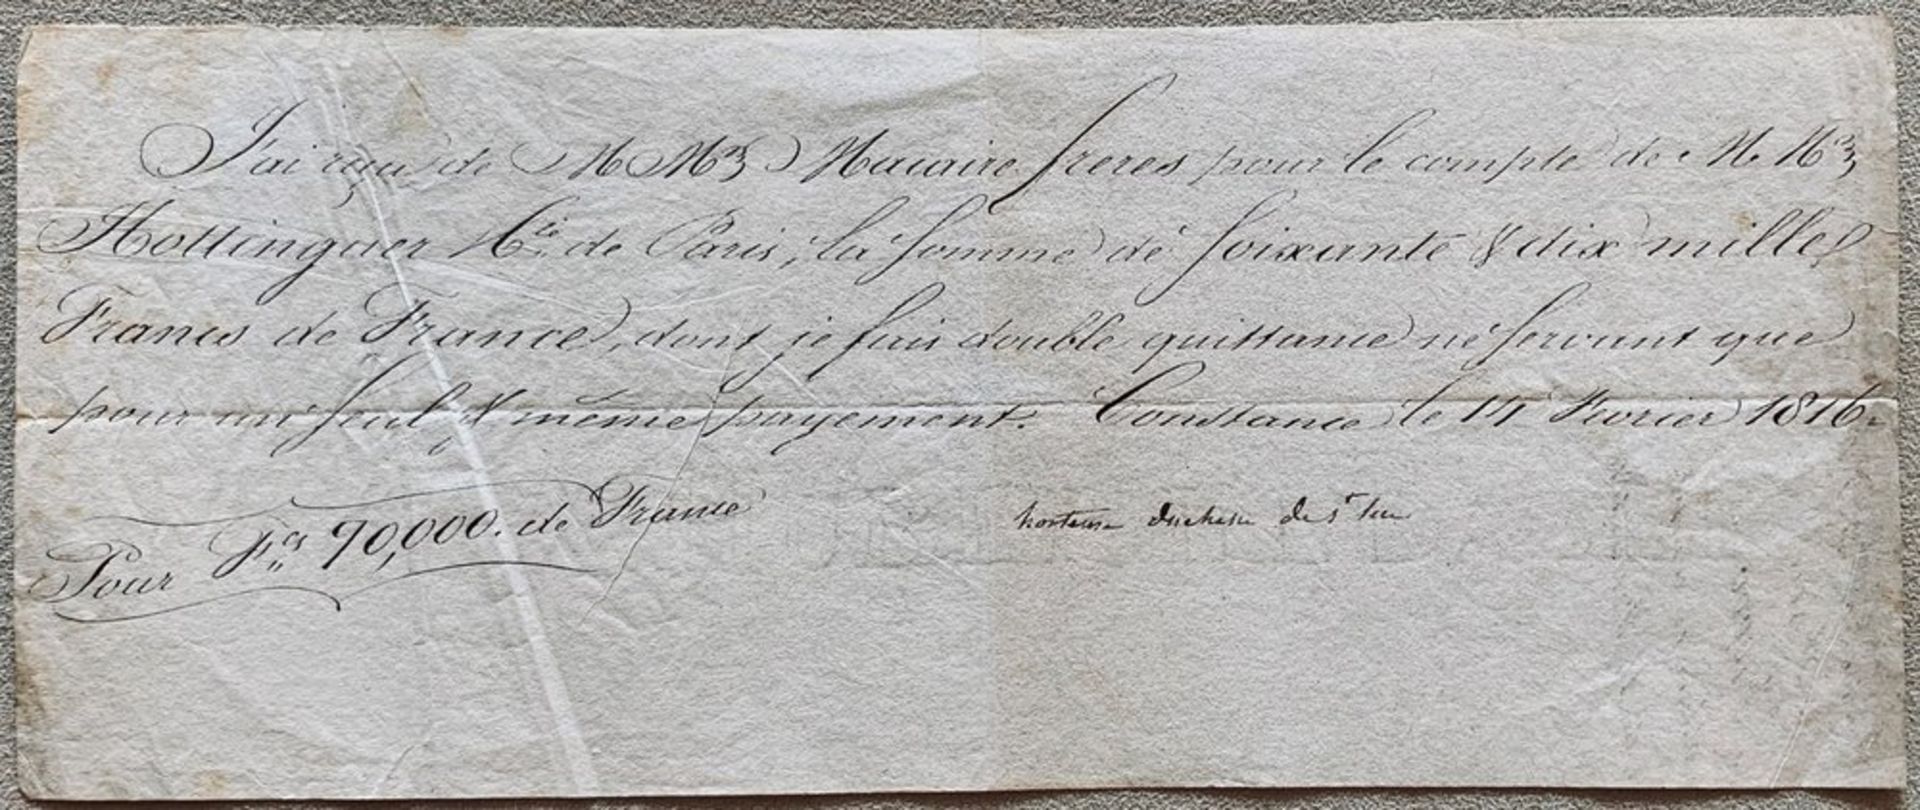 J'ai reçu de M Mrs Macaire freres pour le compte de M. Mrs
Hottinguer & Cie de Paris, la somme de soixante & dix mille
Francs de France, dont je fais double quittance ne servant que
pour un seul & même payement. Constance le 14 Fevrier 1816.
Pour Fcs 70,000. de France
hortense duchesse de st leu